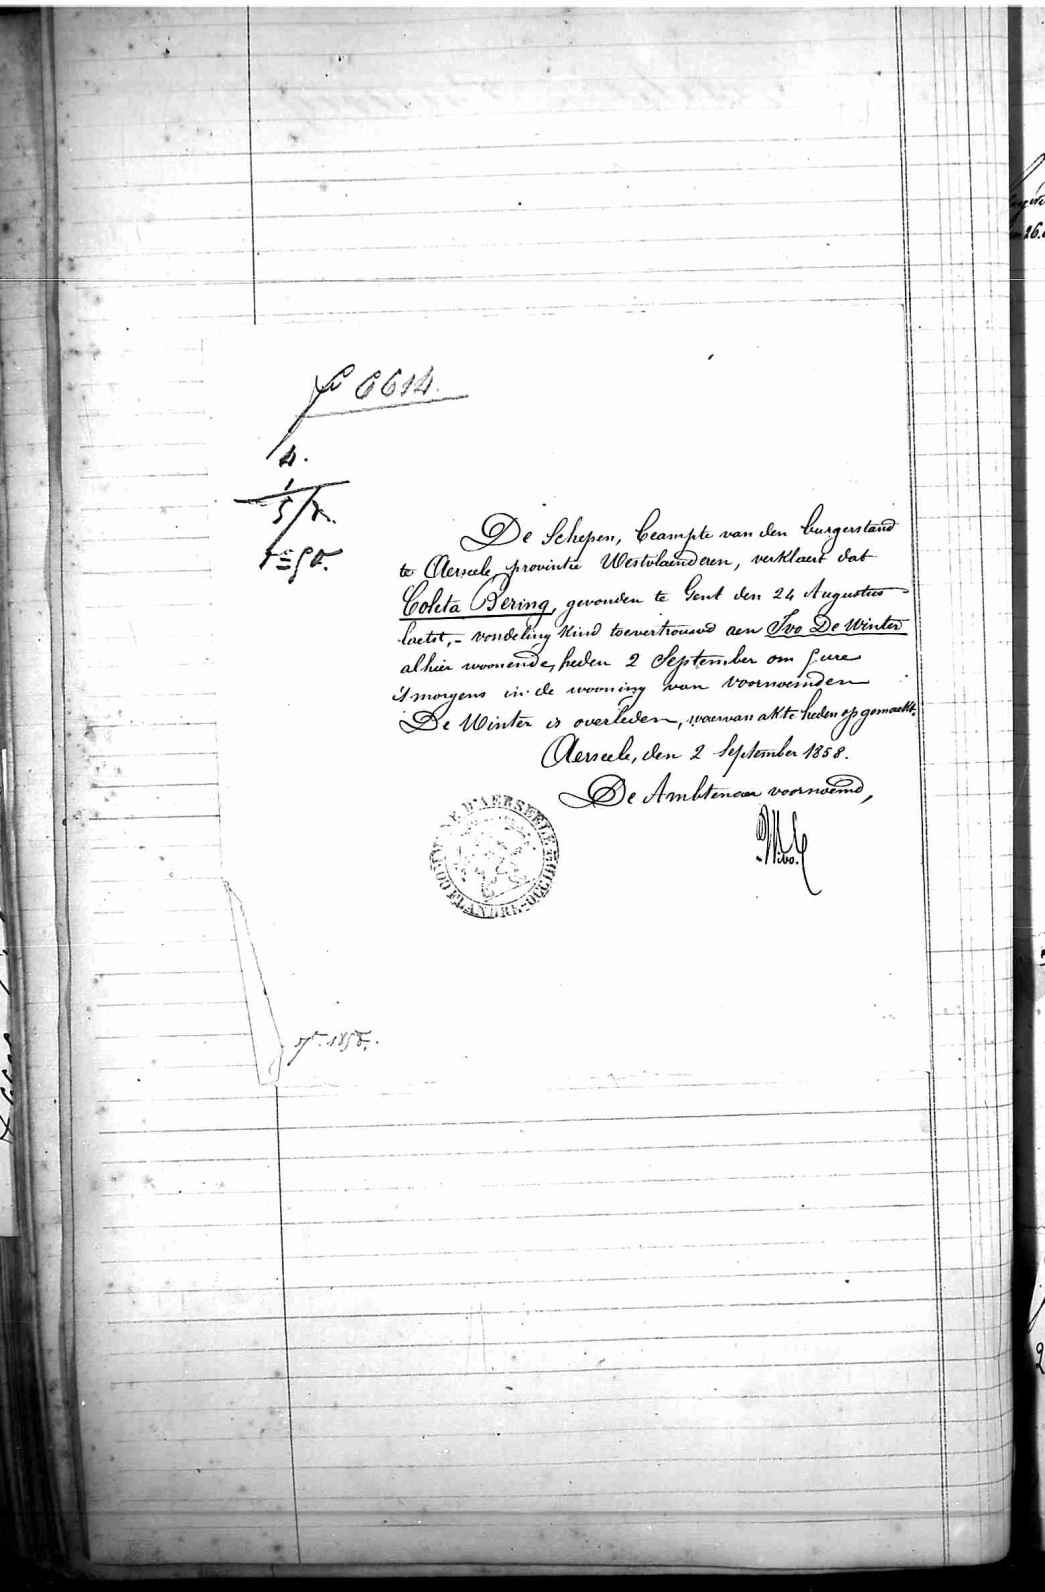 fo 6614.
4.
5/8.
De Schepen, beampte van den burgerstand
te Aerseele, provintie Westvlaenderen, verklaert dat
Coleta Bering, gevonden te Gent den 24 Augustus
laetst, - vondeling kind toevertrouwd aen Ivo De Winter
alhier woonende, heden 2 September om 5 ure
's morgens in de wooning van voornoemden
De Winter is overleden, waervan akte heden opgemaekt.
Aerseele, den 2 September 1858.
De Ambtenaer voornoemd,
COMMUNE D'AERSEELE
FLANDRE-OCCID.LE
1858.